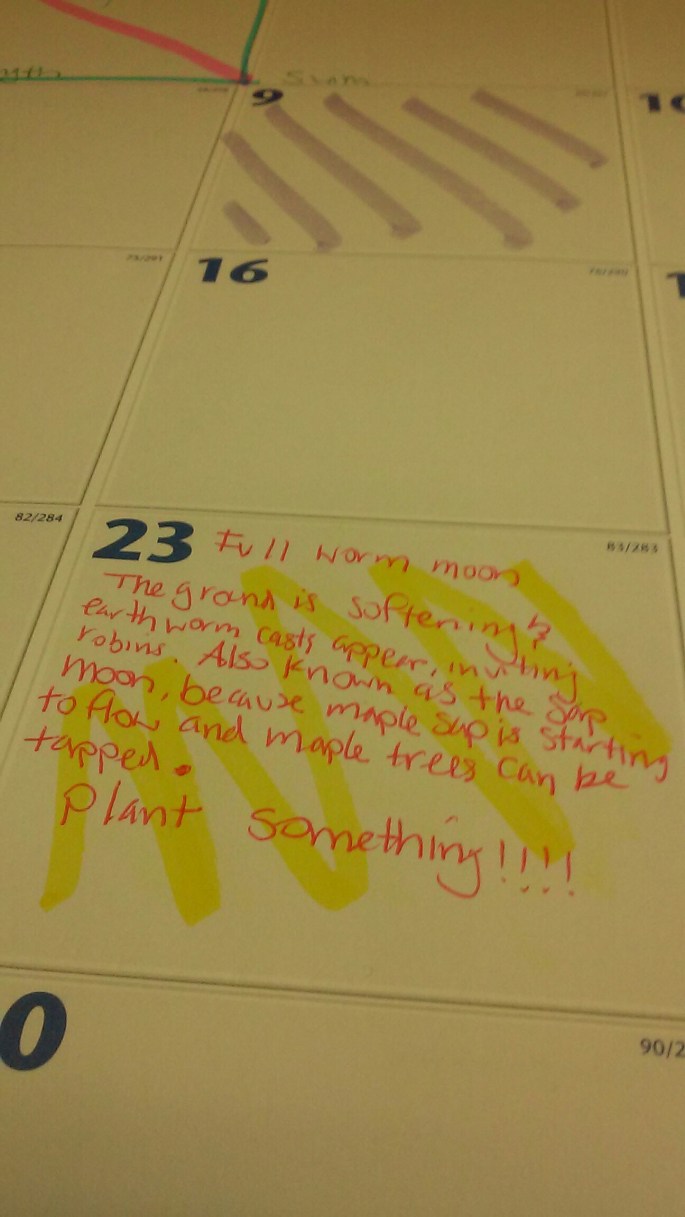 Swim
9
10
16
73/291
82/284
23 Full worm moon
83/283
The grond is softening &
earthworm casts appear, inviting
robins. Also known as the Sap
moon, because maple sap is starting
to flow and maple trees can be
tapped.
Plant something!!!!
0
90/2